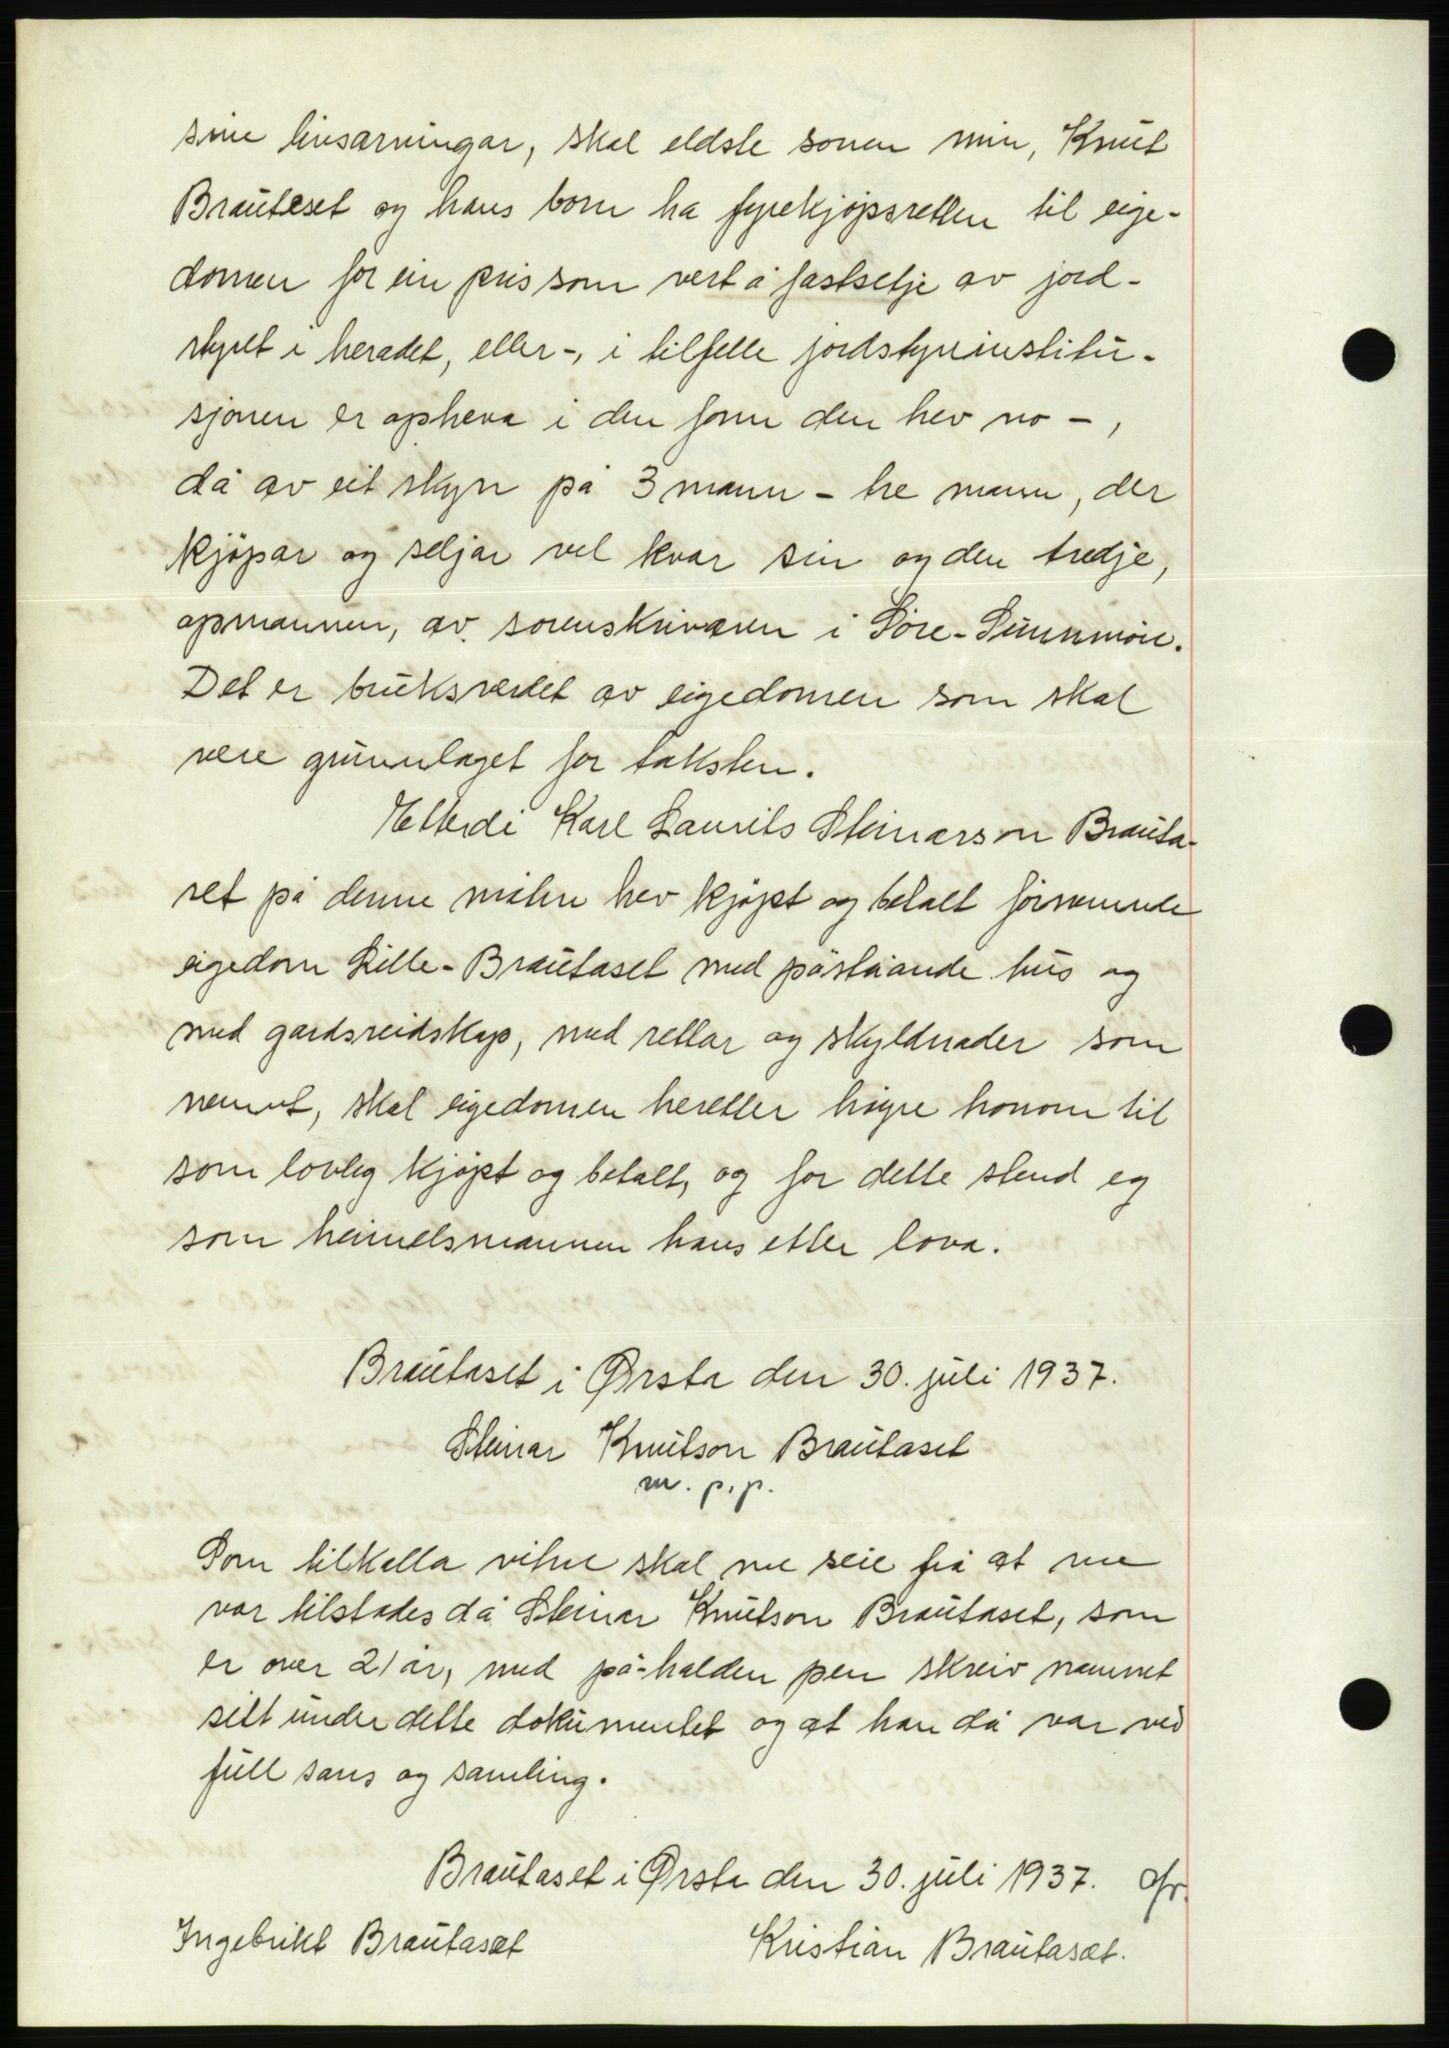 sine livsarvingar, skal eldste sonen min, Knut
Brautaset og hans born ha fyrekjøpsretten til eige-
domen for ein pris som vert å fastsetje av jord-
styret i heradet, eller -, i tilfelle jordstyrinstitu-
sjonen er opheva i den form den hev no -,
då av eit skyn på 3 mann - tre mann, der
kjøpar og seljar vel kvar sin og den tredje,
opmannen, av sorenskrivaren i Søre-Sunnmøre.
Det er bruksverdet av eigedomen som skal
vere grunnlaget for taksten.
Etterdi Karl Laurits Steinarson Brauta-
set på denne måten hev kjøpt og betalt fornemnde
eigedom Litle-Brautaset med påståande hus og
med gardsreidskap, med rettar og skyldnader som
nemnt, skal eigedomen heretter høyre honom til
som lovleg kjøpt og betalt, og for dette stend eg
som heimelsmannen hans etter lova.
Brautaset i Ørsta den 30. juli 1937.
Steinar Knutson Brautaset
m. p. p.
Som tilkalla vitne skal me seie frå at me
var tilstades då Steinar Knutson Brautaset, som
er over 21 år, med på-halden pen skreiv namnet
sitt under dette dokumentet og at han då var ved
full sans og samling.
Brautaset i Ørsta den 30. juli 1937.
Ingebrikt Brautaset Kristian Brautaset.